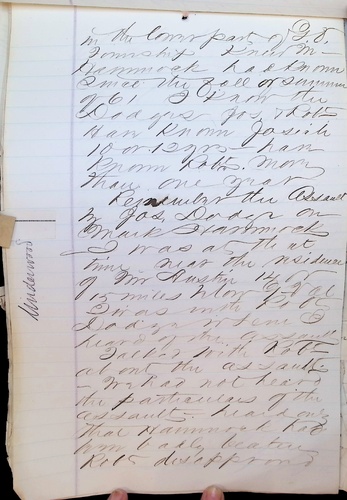 in the lower part of
Township Knew M
Hammock had known
Since the Fall or Summer
of 61 I Know the
Dodges Jos, Robt
Han Known Josiah
10 or 12 yrs - han
Known Robt. More
than one year
Remember the Assault
by Jos. Dodge on
Mark Hammock
I was at that
time near the residence
of Mr Austin 14 or
15 miles below
I was with Robt
Dodge when I
heard of the assault
Talked with Robt
about the assault
- We had not heard
the particulars of the
assault - heard only
that Hammock had
been badly beaten
Robt disapproved
Underwood